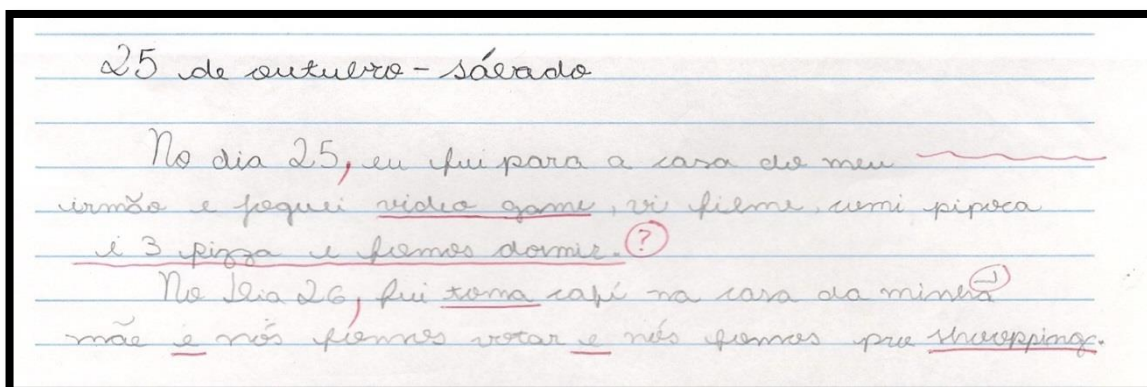 25 de outubro - sábado
No dia 25, eu fui para a casa do meu
irmão e joguei video game, vi filme, comi pipoca
e 3 pizza e fomos dormir. ?
No dia 26, fui toma café na casa da minha
mãe é nós fomos votar e nós fomos pro shoopping.